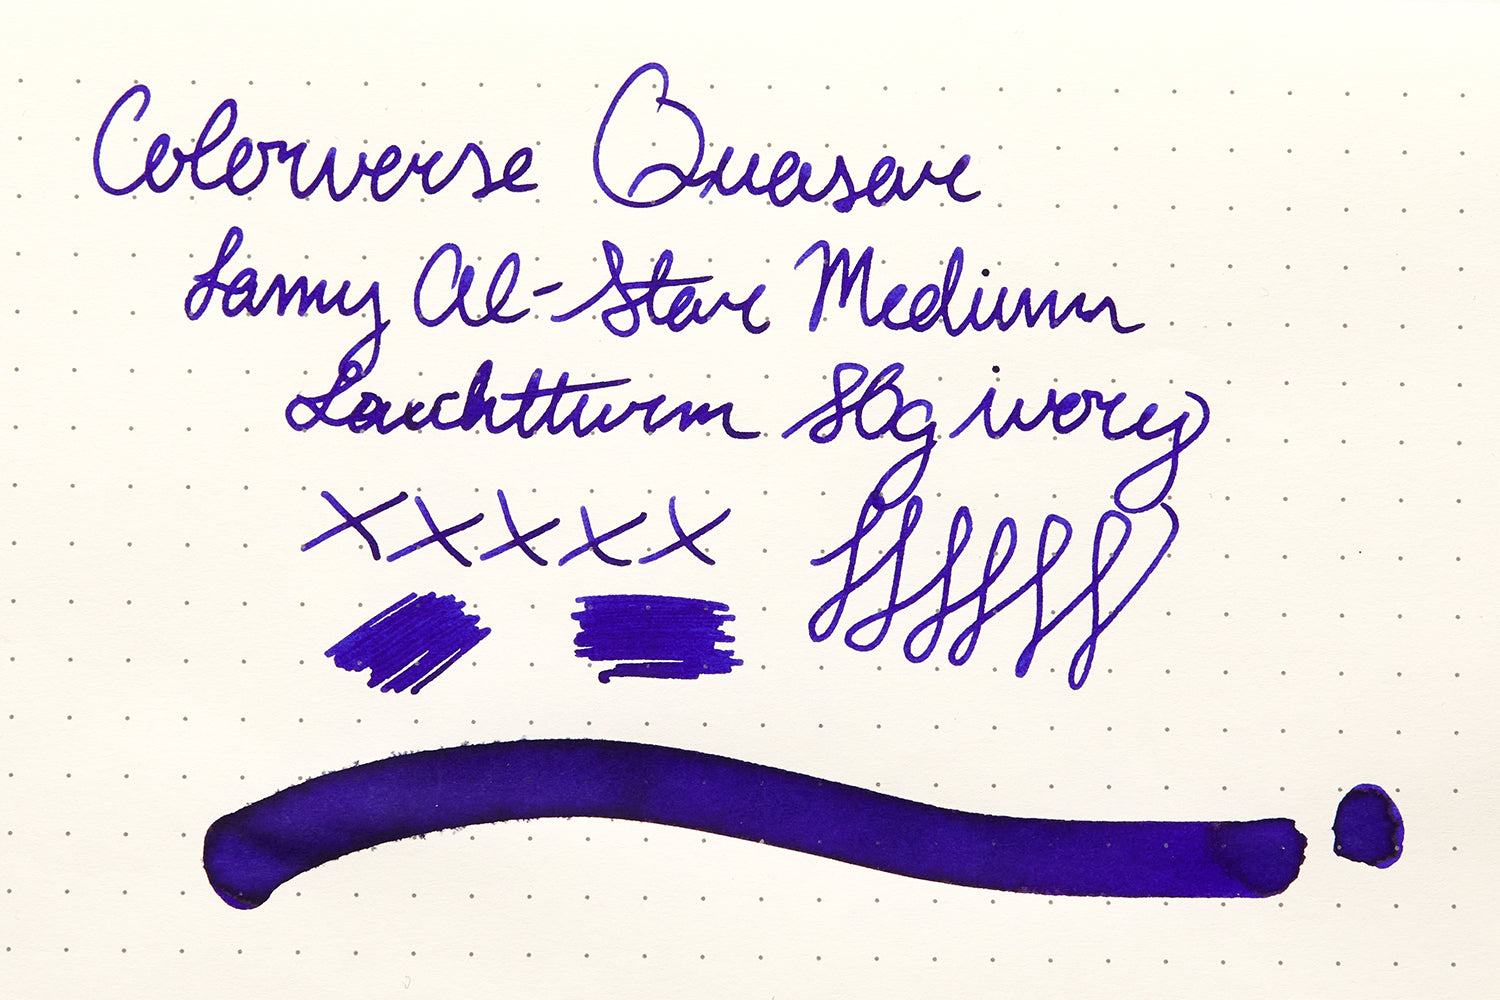 Colorverse Quasar
Lamy Al-Star Medium
Leuchtturm 80g ivory